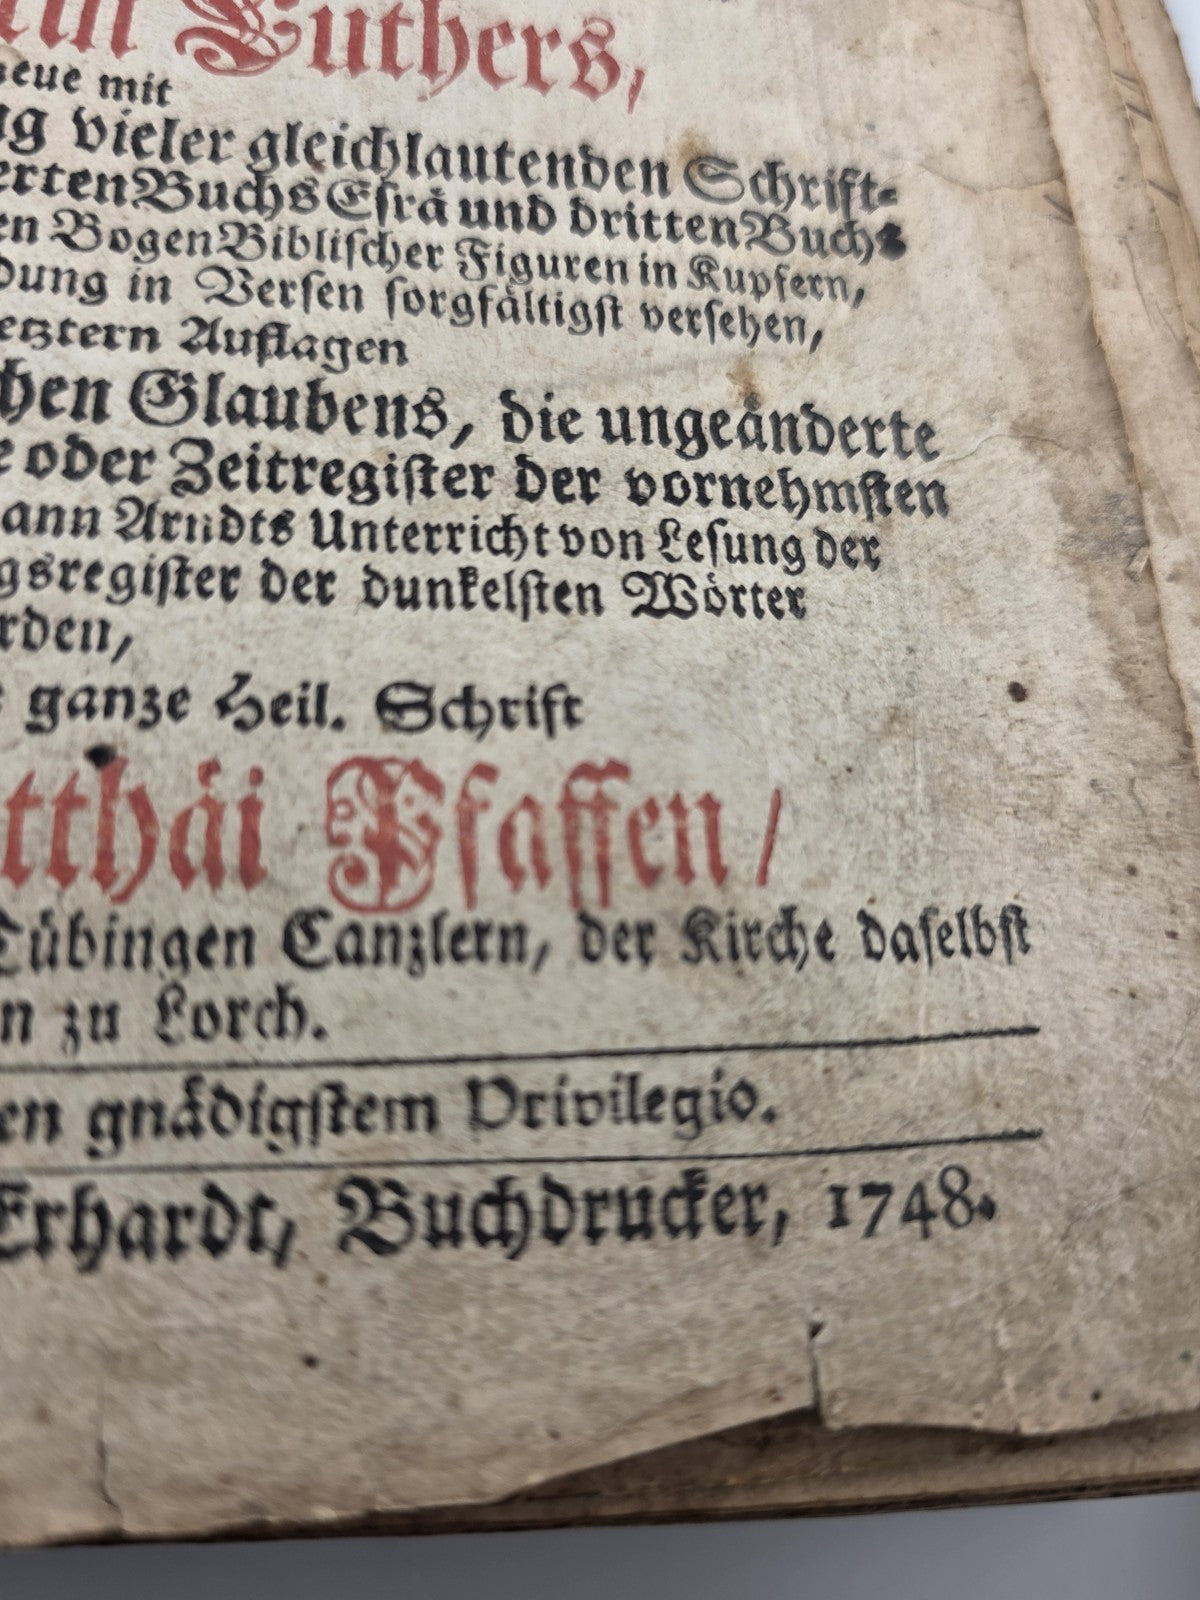 Luthers,
neue mit
vieler gleichlautenden Schrift-
erten Buchs Esrä und dritten Buchs
en Bogen Biblischer Figuren in Kupfern,
dung in Versen sorgfältigst versehen,
letztern Auflagen
chen Glaubens, die ungeänderte
e oder Zeitregister der vornehmsten
ann Arndts Unterricht von Lesung der
gsregister der dunkelsten Wörter
rden,
ganze Heil. Schrift
tthäi Pfaffen /
Tübingen Canzlern, der Kirche daselbst
n zu Lorch.
en gnädigstem Privilegio.
Erhardt, Buchdrucker, 1748.